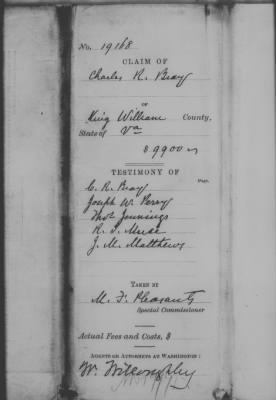 No. 19168
CLAIM OF
Charles R. Bray
OF
King William County,
State of Va
$ 9900
TESTIMONY OF
Page.
C. R. Bray
Joseph W. Perry
Thos Jennings
R. S. Muse
J. M. Matthews
TAKEN BY
M. F. Pleasants
Special Commissioner
Actual Fees and Costs, $
AGENTS OR ATTORNEYS AT WASHINGTON:
W. Willoughby